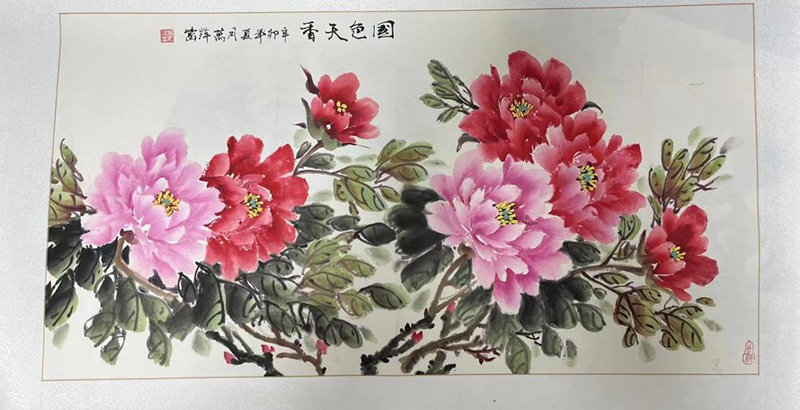 國色天香 辛卯年夏月萬輝